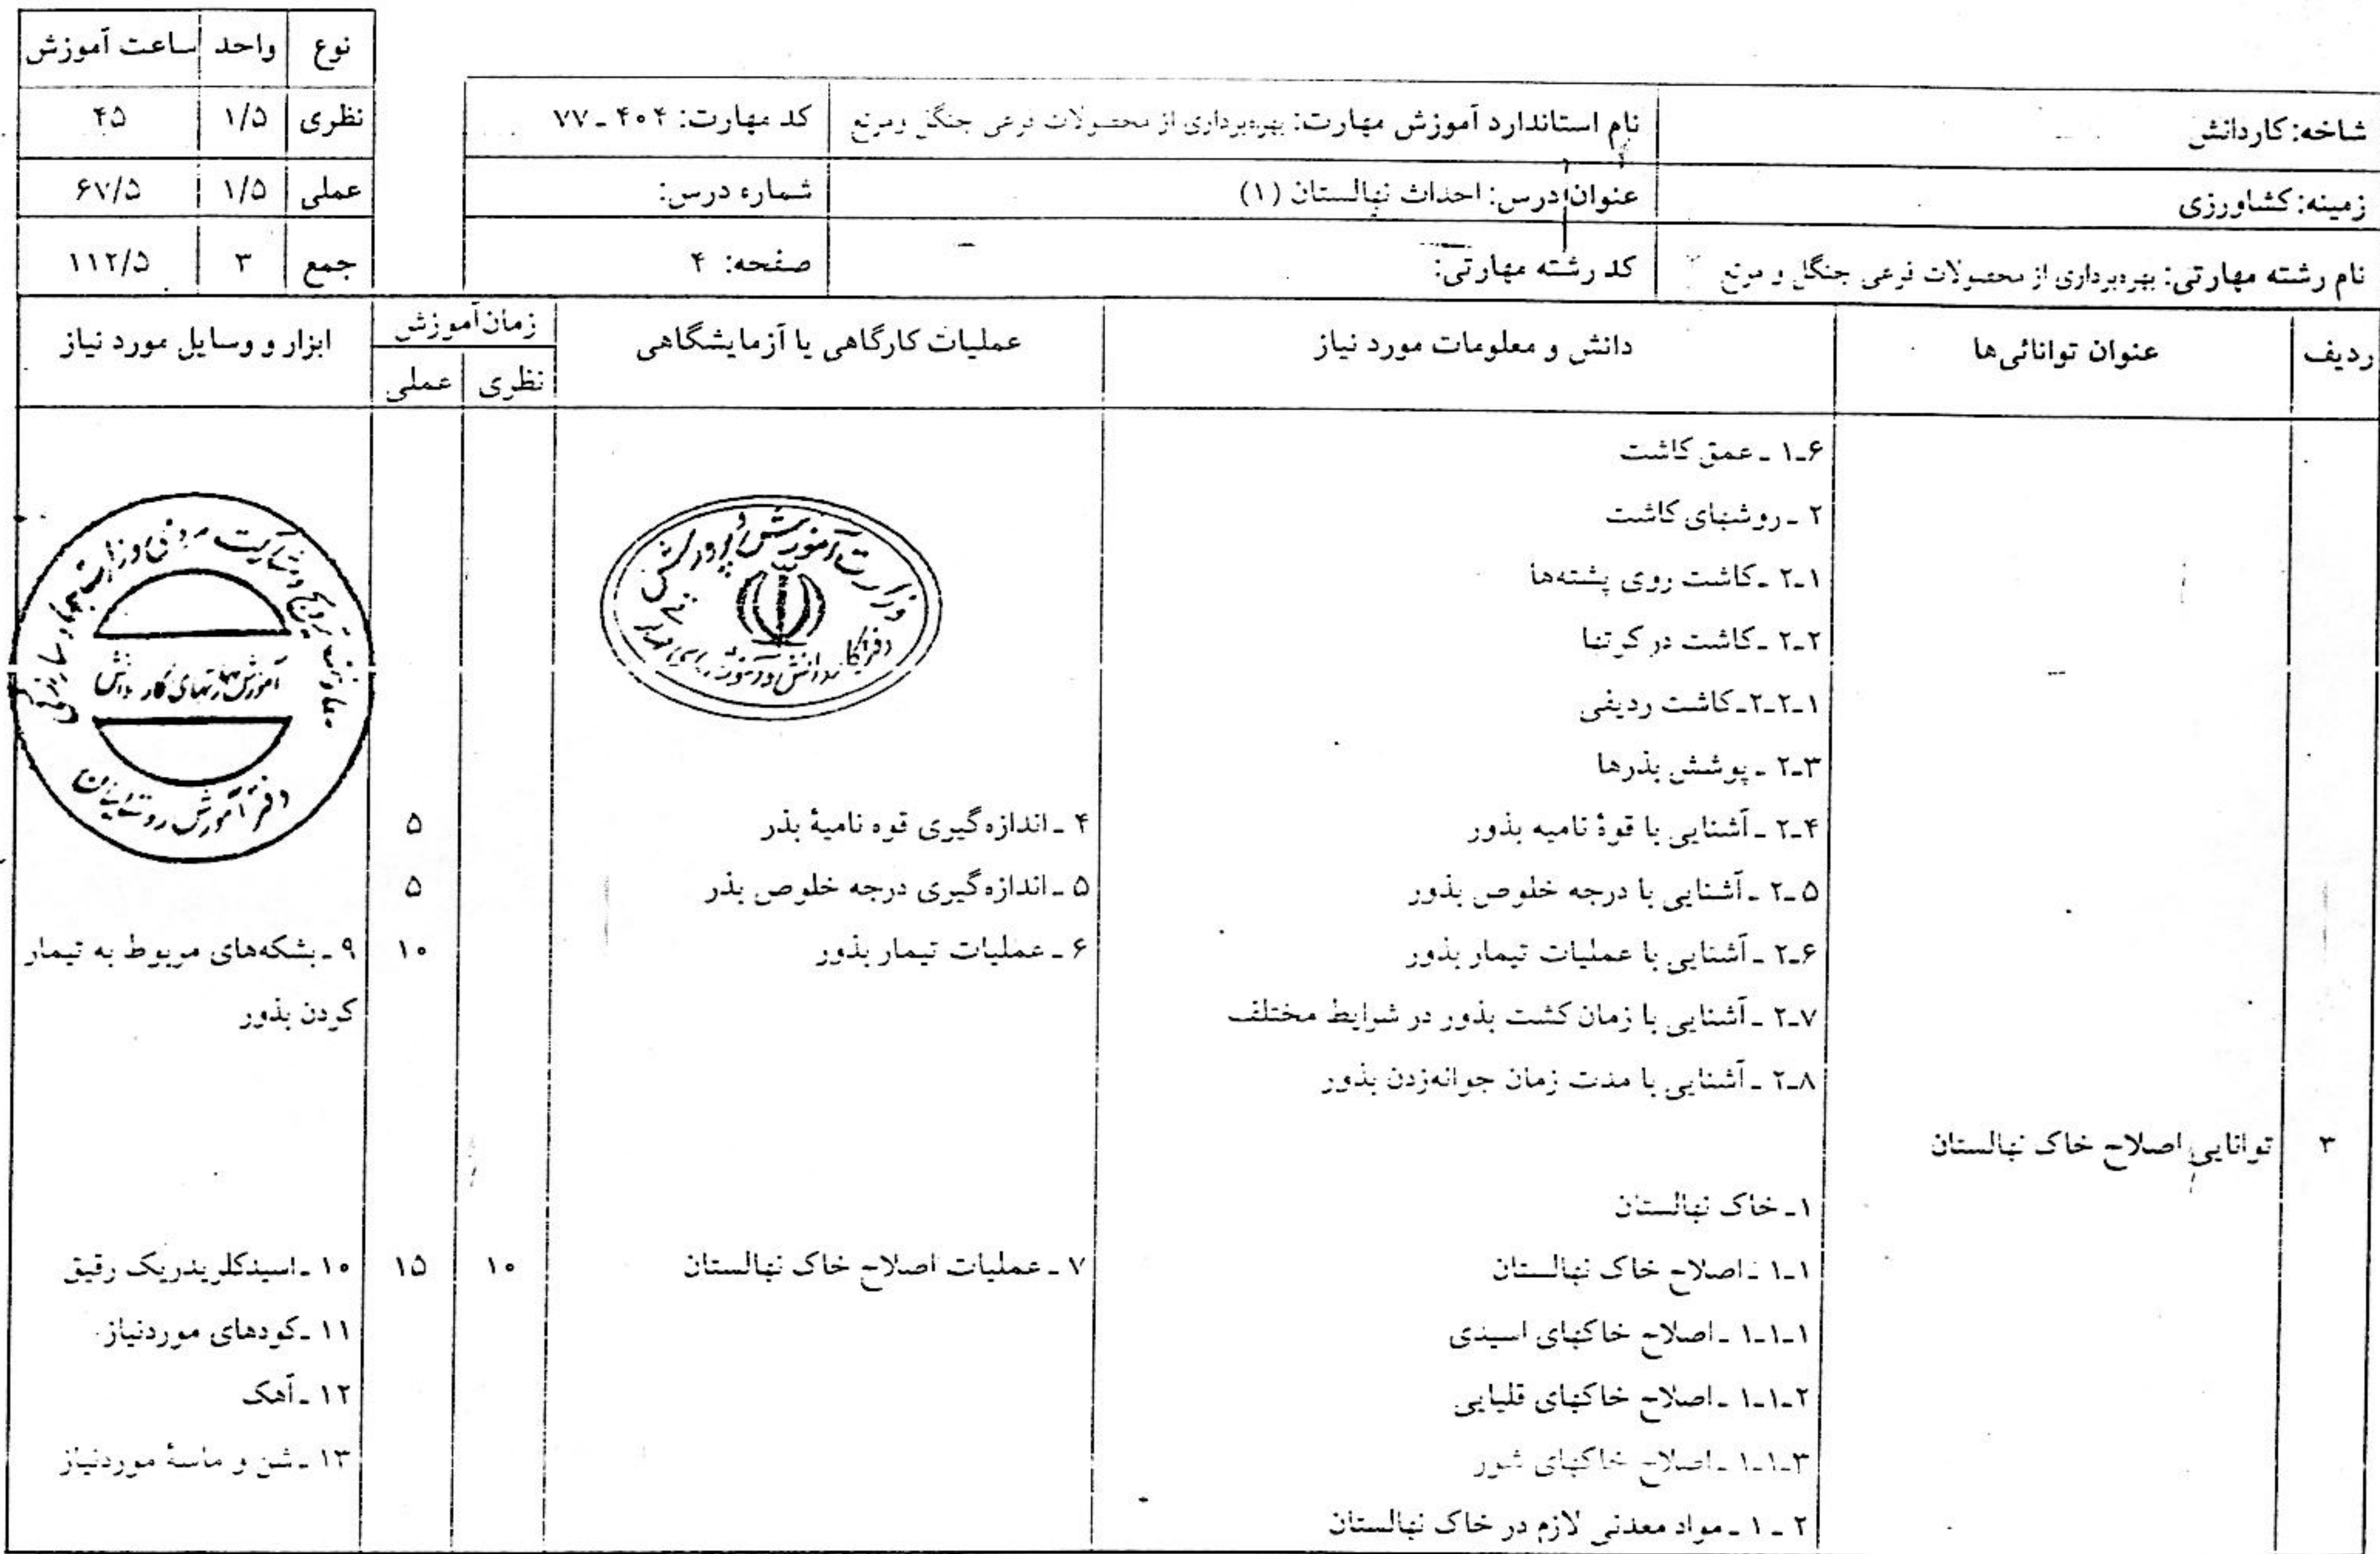 نوع واحد ساعت آموزش
نظری ۱/۵ ۴۵
عملی ۱/۵ ۶۷/۵
جمع ۳ ۱۱۲/۵
شاخه: کاردانش
نام استاندارد آموزش مهارت: بهره‌برداری از محصولات فرعی جنگل و مرتع
کد مهارت: ۴۰۴ ـ ۷۷
زمینه: کشاورزی
عنوان درس: احداث نهالستان (۱)
شماره درس:
نام رشته مهارتی: بهره‌برداری از محصولات فرعی جنگل و مرتع
کد رشته مهارتی:
صفحه: ۴
ردیف
عنوان توانائی‌ها
دانش و معلومات مورد نیاز
عملیات کارگاهی یا آزمایشگاهی
زمان آموزش
نظری عملی
ابزار و وسایل مورد نیاز
۱ـ۶ ـ عمق کاشت
۲ ـ روشهای کاشت
۲ـ۱ ـ کاشت روی پشته‌ها
۲ـ۲ ـ کاشت در کرتها
۲ـ۲ـ۱ـ کاشت ردیفی
۲ـ۳ ـ پوشش بذرها
۲ـ۴ ـ آشنایی با قوهٔ نامیه بذور
۴ ـ اندازه‌گیری قوه نامیهٔ بذر
۵
۲ـ۵ ـ آشنایی با درجه خلوص بذور
۵ ـ اندازه‌گیری درجه خلوص بذر
۵
۲ـ۶ ـ آشنایی با عملیات تیمار بذور
۶ ـ عملیات تیمار بذور
۱۰
۹ ـ بشکه‌های مربوط به تیمار
کردن بذور
۲ـ۷ ـ آشنایی با زمان کشت بذور در شرایط مختلف
۲ـ۸ ـ آشنایی با مدت زمان جوانه‌زدن بذور
۳
توانایی اصلاح خاک نهالستان
۱ـ خاک نهالستان
۱ـ۱ ـ اصلاح خاک نهالستان
۷ ـ عملیات اصلاح خاک نهالستان
۱۰
۱۵
۱۰ ـ اسیدکلریدریک رقیق
۱ـ۱ـ۱ ـ اصلاح خاکهای اسیدی
۱۱ ـ کودهای موردنیاز
۱ـ۱ـ۲ ـ اصلاح خاکهای قلیایی
۱۲ ـ آهک
۱ـ۱ـ۳ ـ اصلاح خاکهای شور
۱۳ ـ شن و ماسهٔ موردنیاز
۲ ـ ۱ ـ مواد معدنی لازم در خاک نهالستان
وزارت آموزش و پرورش
معاونت ترویج و مشارکت مردمی وزارت جهاد سازندگی
آموزش مهارتهای کار دانش
دفتر آموزش روستائیان